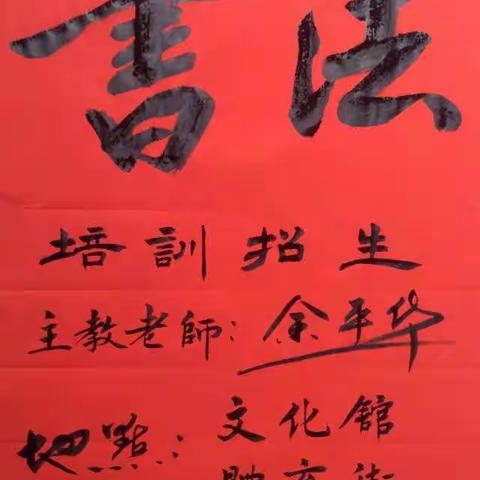 書法
培訓招生
主教老師：余平华
地點：文化館